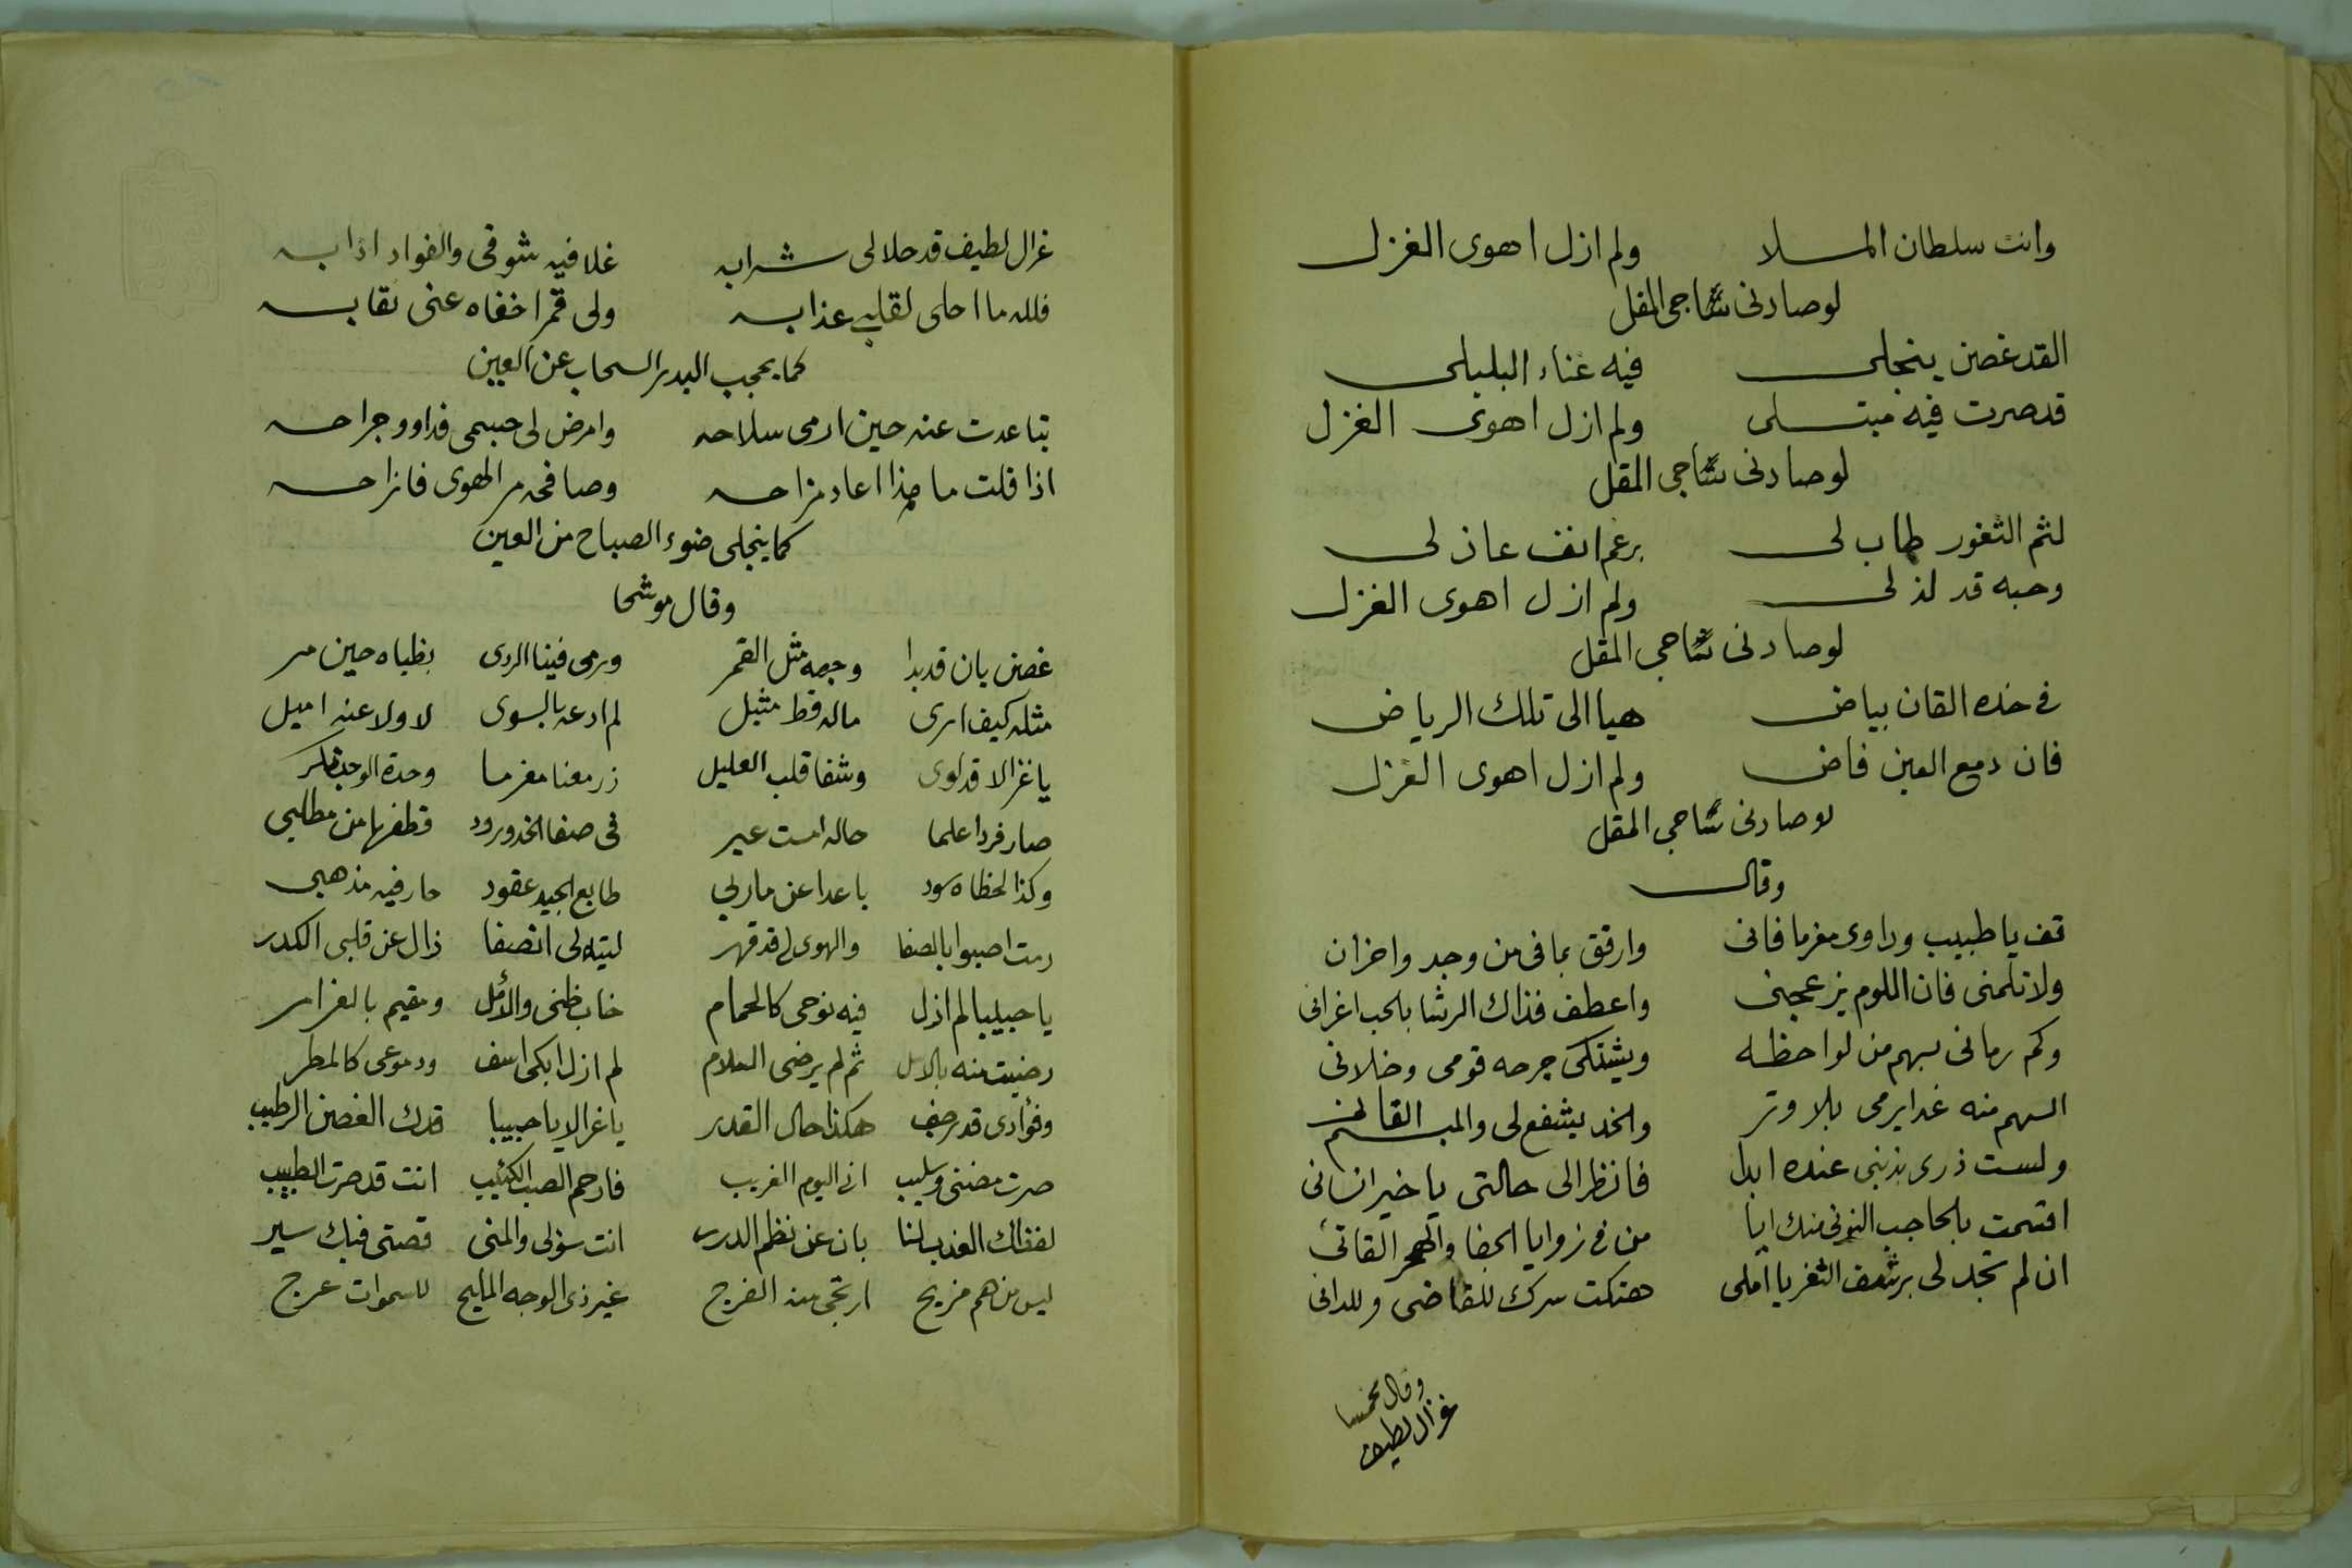 وانت سلطان الملا ولم ازل اهوى الغزل
لوصادنى ساجى المقل
القد غصن ينجلى فيه غناء البلبلى
قد صرت فيه مبتلى ولم ازل اهوى الغزل
لوصادنى ساجى المقل
لثم الثغور طاب لى برغم انف عاذلى
وحبه قد لذلى ولم ازل اهوى الغزل
لوصادنى ساجى المقل
فى خده القان بياض هيا الى تلك الرياض
فان دمع العين فاض ولم ازل اهوى الغزل
لوصادنى ساجى المقل
وقال
قف يا طبيب وداوى مغرما فانى وارفق بما فى من وجد واحزان
ولا تلمنى فان اللوم يزعجنى واعطف فذاك الرشا بالحب اغرانى
وكم رمانى بسهم من لواحظه ويشتكى جرحه قومى وخلانى
السهم منه غدا يرمى بلا وتر والخد يشفع لى والمبسم القانى
ولست ذرى بذنبى عنده ابدا فانظر الى حالتى يا خير انسانى
اقسمت بالحاجب النونى منك ايا من فى زوايا الجفا والهجر القانى
ان لم تجد لى برشف الثغر يا املى هتكت سرك للقاضى وللدانى
وقال مخمسا
غزال لطيف
غزال لطيف قد حلا لى شرابه غلا فيه شوقى والفواد اذابه
فلله ما احلى لقلبى عذابه ولى قمر اخفاه عنى نقابه
كما يحجب البدر السحاب عن العين
تباعدت عنه حين ارمى سلاحه وامرض لى جسمى فداوو جراحه
اذا قلت ما هذا اعاد مزاحه وصافحه مر الهوى فازاحه
كما ينجلى ضوء الصباح من العين
وقال موشحا
غصن بان قد بدا وجهه مثل القمر ورمى فينا الردى بظباه حين مر
مثله كيف ارى ماله قط مثيل لم ادعه بالسوى لا ولا عنه اميل
يا غزالا قد لوى وشفا قلب العليل زر معنا مغرما وحدة الوجد
صار فردا علما حاله امست عبر فى صفا الخد ورود قطفها من مطلبى
وكذا لحظاه سود باعدا عن ماربى طابع الجيد عقود حار فيه مذهبى
رمت اصبوا بالصفا والهوى لى قد قهر ليته لى انصفا زال عن قلبى الكدر
يا حبيبا لم ازل فيه نوحى كالحمام خاب ظنى والأمل ومقيم بالغرام
رضيت منه بالامل ثم لم يرضى السلام لم ازل ابكى اسف ودموعى كالمطر
وفؤادى قد رجف هكذا حال القدر يا غزالا يا حبيبا قدك الغصن الرطيب
صرت مضنى وسليب انى اليوم الغريب فارحم الصب الكئيب انت قد صرت الطبيب
لفظك العذب لنا بان عن نظم الدرر انت سؤلى والمنى قصتى فيك سير
ليس من هم مزيح ارتجى منه الفرج غير ذى الوجه المليح للسموات عرج